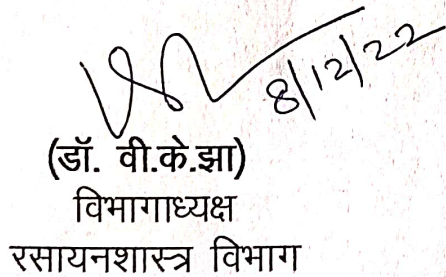 8/12/22
(डॉ. वी.के.झा)
विभागाध्यक्ष
रसायनशास्त्र विभाग